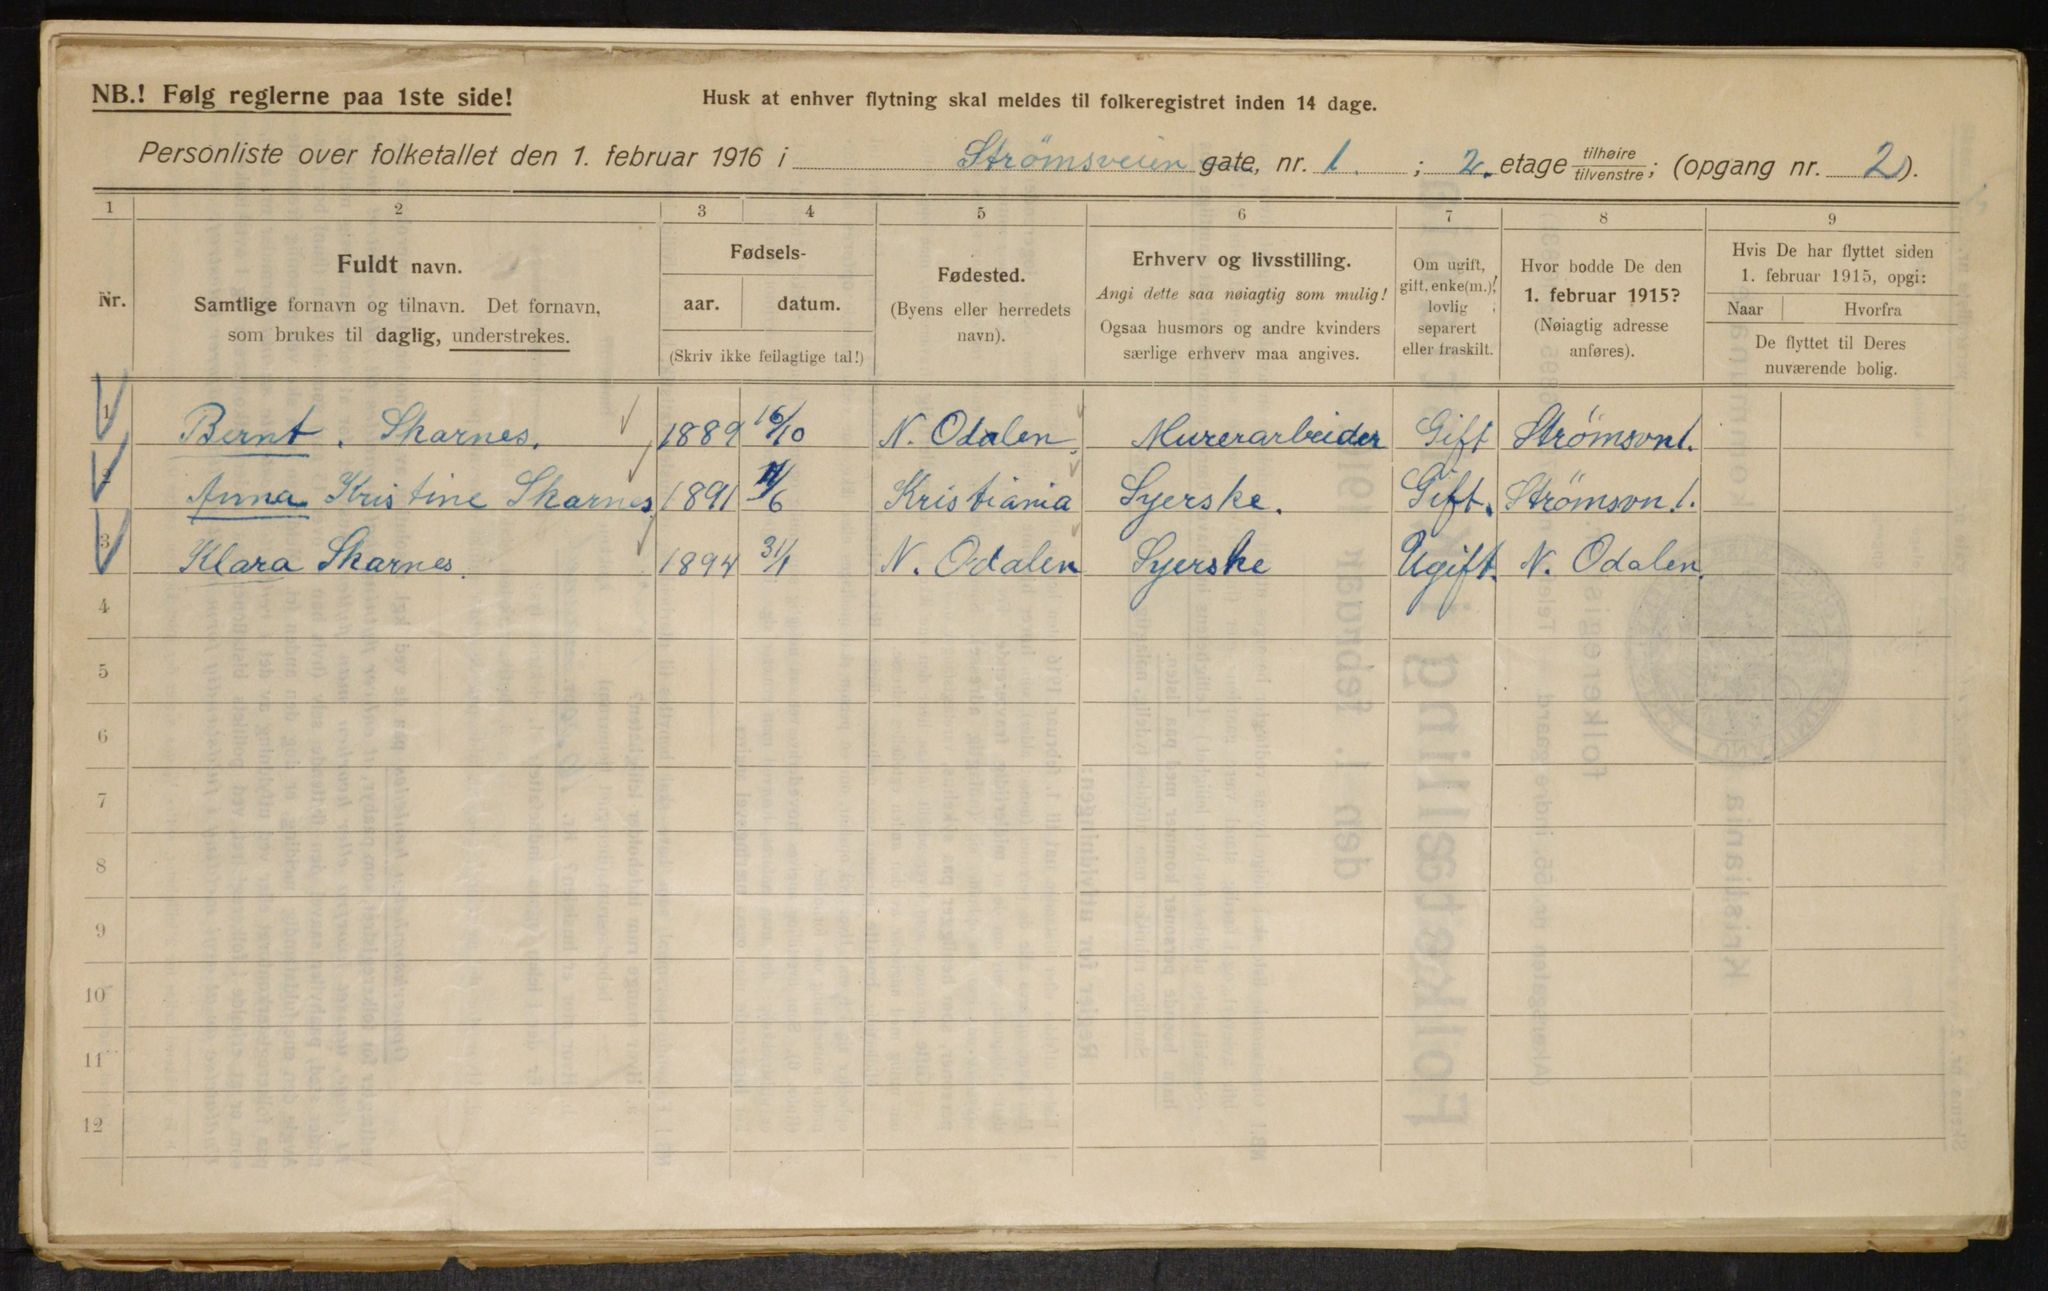 NB.! Følg reglerne paa 1ste side!
Husk at enhver flytning skal meldes til folkeregistret inden 14 dage.
Personliste over folketallet den 1. februar 1916 i Strömsveien gate, nr. 1. ; 2. etage tilhøire/tilvenstre; (opgang nr. 2).
1 2 3 4 5 6 7 8 9
Nr.
Fuldt navn.
Samtlige fornavn og tilnavn. Det fornavn,
som brukes til daglig, understrekes.
Fødsels-
aar. datum.
(Skriv ikke feilagtige tal!)
Fødested.
(Byens eller herredets
navn).
Erhverv og livsstilling.
Angi dette saa nøiagtig som mulig!
Ogsaa husmors og andre kvinders
særlige erhverv maa angives.
Om ugift,
gift, enke(m.),
lovlig
separert
eller fraskilt.
Hvor bodde De den
1. februar 1915?
(Nøiagtig adresse
anføres).
Hvis De har flyttet siden
1. februar 1915, opgi:
Naar Hvorfra
De flyttet til Deres
nuværende bolig.
1 Bernt. Skarnes. 1889 /10 N. Odalen. Murerarbeider Gift Strømsvn 1.
2 Anna Kristine Skarnes. 1891 /6 Kristiania Syerske. Gift. Strömsvn 1.
3 Klara Skarnes. 1894 31/1 N. Odalen Syerske Ugift. N. Odalen.
4
5
6
7
8
9
10
11
12